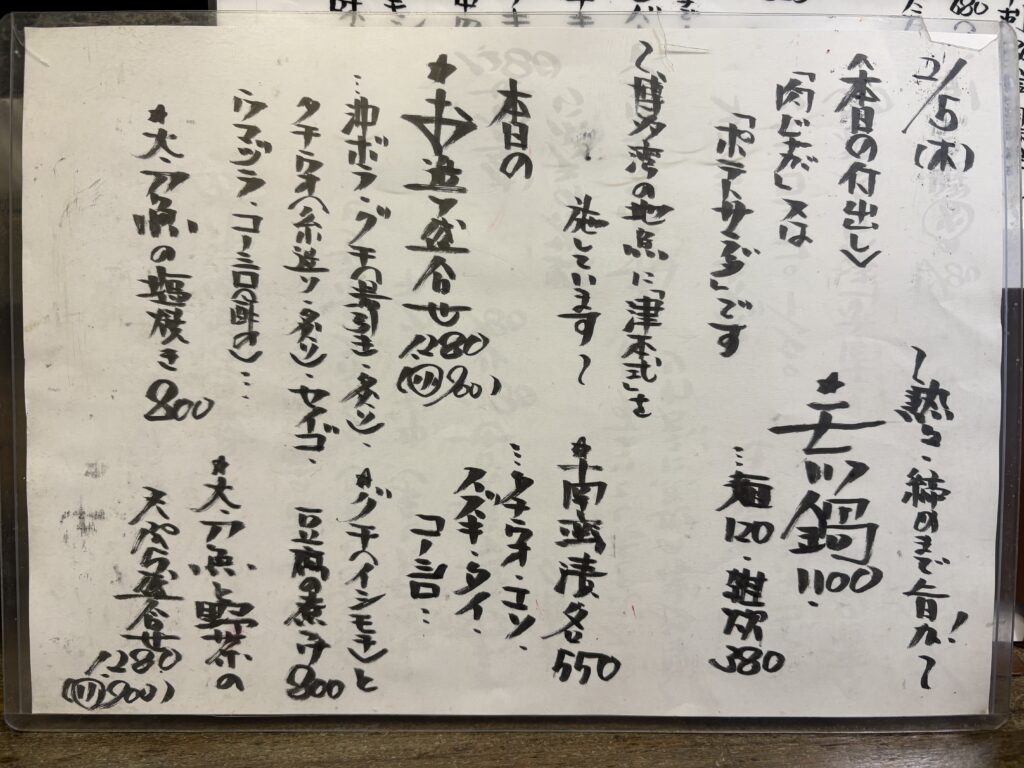 2/5(木)
〈本日の付出し〉
「肉じゃが」又は
「ポテトサラダ」です
〜熱々・締めまで旨め!〜
★モツ鍋 1100.
…麺120・雑炊380
〜博多湾の地点に「津本式」を
施しています〜
本日の
★お造り盛合せ 1.280
(小)900)
…沖ボラ・グチ(湯引き・炙り)・
タチウオ(糸造り・炙り)・セイゴ・
ウマヅラ・コノシロ(酢〆)…
★太刀魚の塩焼き 800
★南蛮漬各550
…タチウオ・エソ・
スズキ・クロダイ・
コノシロ…
★グチ(イシモチ)と
豆腐の煮つけ 800
★太刀魚と野菜の
天ぷら盛合せ 1.280
(小)900)